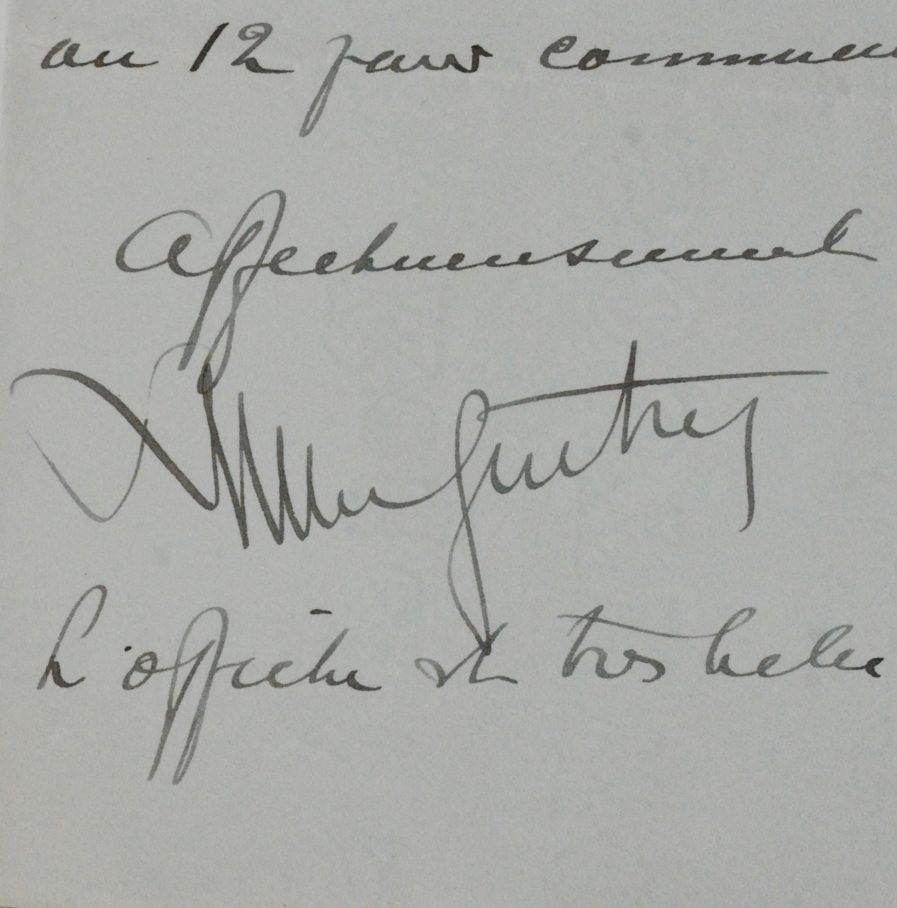 au 12 pour commen
Affectueusement
L'affiche est très belle